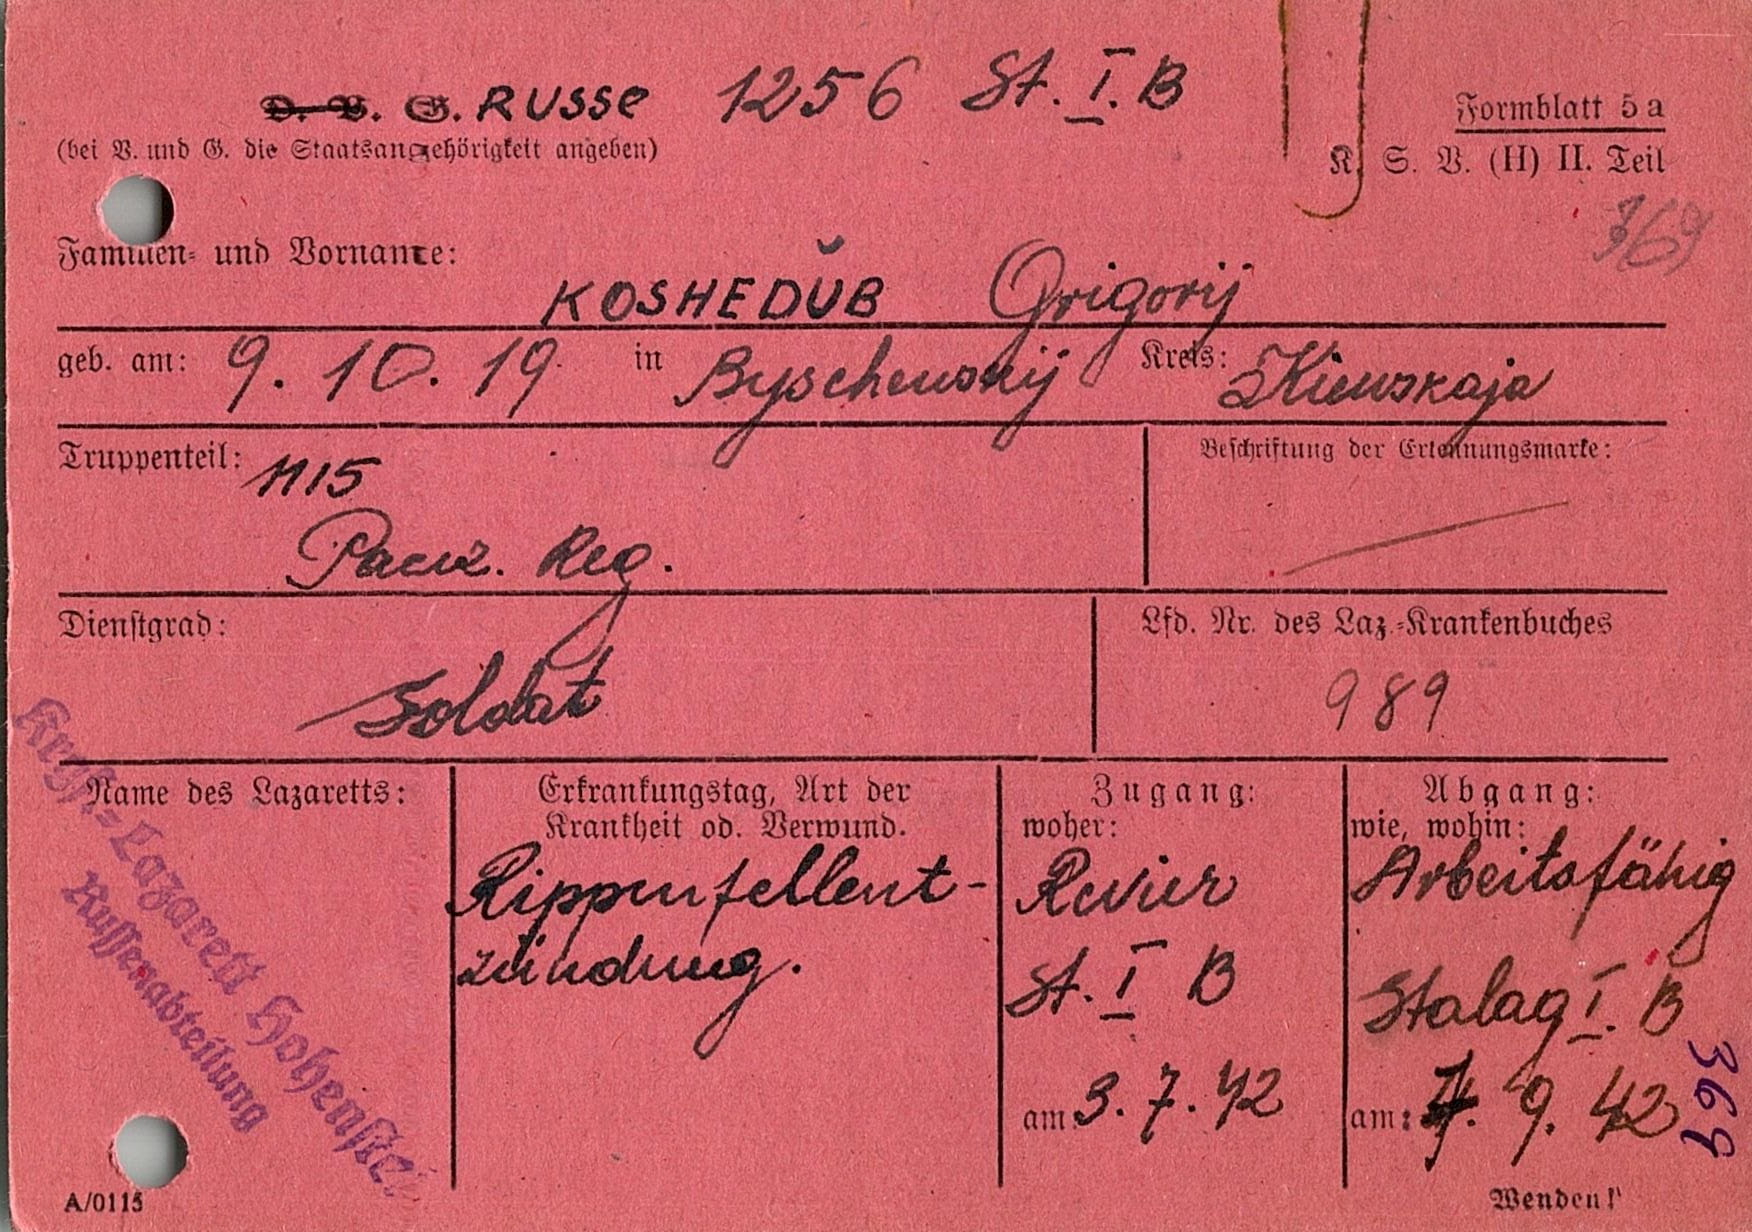 D. V. G. RUSSE 1256 St. I. B
(bei V. und G. die Staatsangehörigkeit angeben)
Formblatt 5 a
K. S. V. (H) II. Teil
369
Familien- und Vorname:
KOSHEDŬB Grigorij
geb. am: 9. 10. 19. in Byschewskij Kreis: Kiewskaja
Truppenteil: 1115
Panz. Reg.
Beschriftung der Erkennungsmarke:
Dienstgrad:
Soldat
Lfd. Nr. des Laz.-Krankenbuches
989
Name des Lazaretts:
Krgf.-Lazarett Hohenstein
Russenabteilung
Erkrankungstag, Art der
Krankheit od. Verwund.
Rippenfellent-
zündung.
Zugang:
woher:
Revier
St. I B
am 3. 7. 42
Abgang:
wie, wohin:
Arbeitsfähig
Stalag I. B
am: 7. 9. 42
369
A/0115
Wenden!